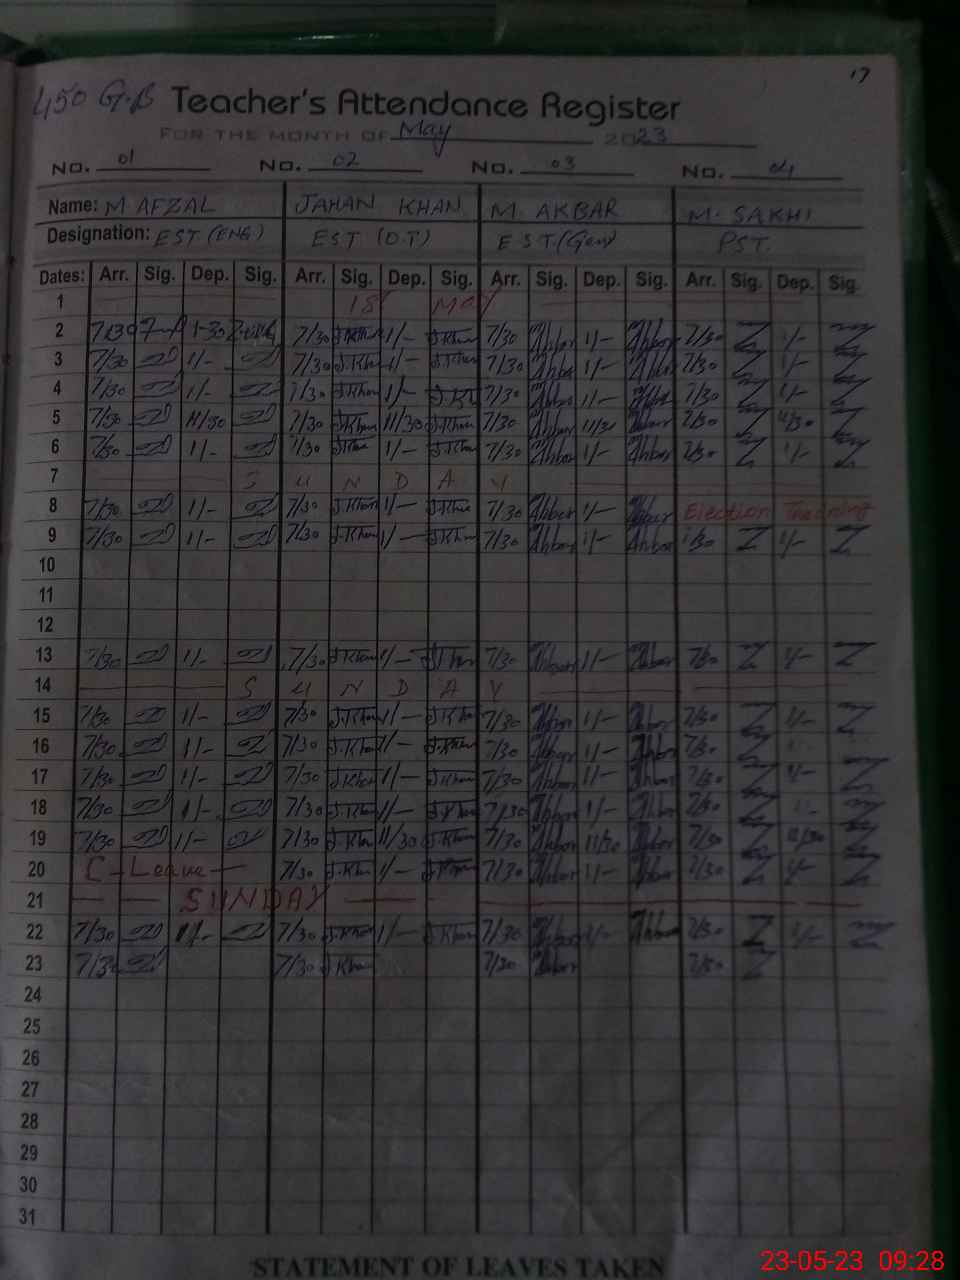 17
450 G.B Teacher's Attendance Register
FOR THE MONTH OF May 2023
No. 01 No. 02 No. 03 No. 04
Name: M AFZAL JAHAN KHAN M. AKBAR M. SAKHI
Designation: EST (ENG) EST (O.T) E.S.T. (Gen) PST.
Dates: Arr. Sig. Dep. Sig. Arr. Sig. Dep. Sig. Arr. Sig. Dep. Sig. Arr. Sig. Dep. Sig.
1 1st May
2 7/30 1-30 7/30 J.Khan 1/- J.Khan 7/30 Akbar 1/- Akbar 7/30 1/-
3 7/30 1/- 7/30 J.Khan 1/- J.Khan 7/30 Akbar 1/- Akbar 7/30 1/-
4 7/30 1/- 7/30 J.Khan 1/- J.Khan 7/30 Akbar 1/- Akbar 7/30 1/-
5 7/30 11/30 7/30 J.Khan 11/30 J.Khan 7/30 Akbar 11/30 Akbar 7/30 11/30
6 7/30 1/- 7/30 J.Khan 1/- J.Khan 7/30 Akbar 1/- Akbar 7/30 1/-
7 S U N D A Y
8 7/30 1/- 7/30 J.Khan 1/- J.Khan 7/30 Akbar 1/- Akbar Election Training
9 7/30 1/- 7/30 J.Khan 1/- J.Khan 7/30 Akbar 1/- Akbar 7/30 1/-
10
11
12
13 7/30 1/- 7/30 J.Khan 1/- J.Khan 7/30 Akbar 1/- Akbar 7/30 1/-
14 S U N D A Y
15 7/30 1/- 7/30 J.Khan 1/- J.Khan 7/30 Akbar 1/- Akbar 7/30 1/-
16 7/30 1/- 7/30 J.Khan 1/- J.Khan 7/30 Akbar 1/- Akbar 7/30 1/-
17 7/30 1/- 7/30 J.Khan 1/- J.Khan 7/30 Akbar 1/- Akbar 7/30 1/-
18 7/30 1/- 7/30 J.Khan 1/- J.Khan 7/30 Akbar 1/- Akbar 7/30 1/-
19 7/30 1/- 7/30 J.Khan 11/30 J.Khan 7/30 Akbar 11/30 Akbar 7/30 11/30
20 C-Leave 7/30 J.Khan 1/- J.Khan 7/30 Akbar 1/- Akbar 7/30 1/-
21 SUNDAY
22 7/30 1/- 7/30 J.Khan 1/- J.Khan 7/30 Akbar 1/- Akbar 7/30 1/-
23 7/30 7/30 J.Khan 7/30 Akbar 7/30
24
25
26
27
28
29
30
31
STATEMENT OF LEAVES TAKEN
23-05-23 09:28